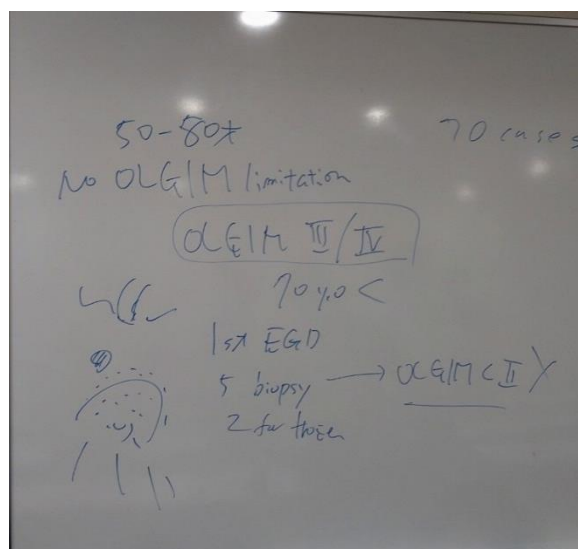 50-80
70 cases
No OLGIM limitation
OLGIM III/IV
70 y.o <
1st EGD
5 biopsy → OLGIM < II
2 for